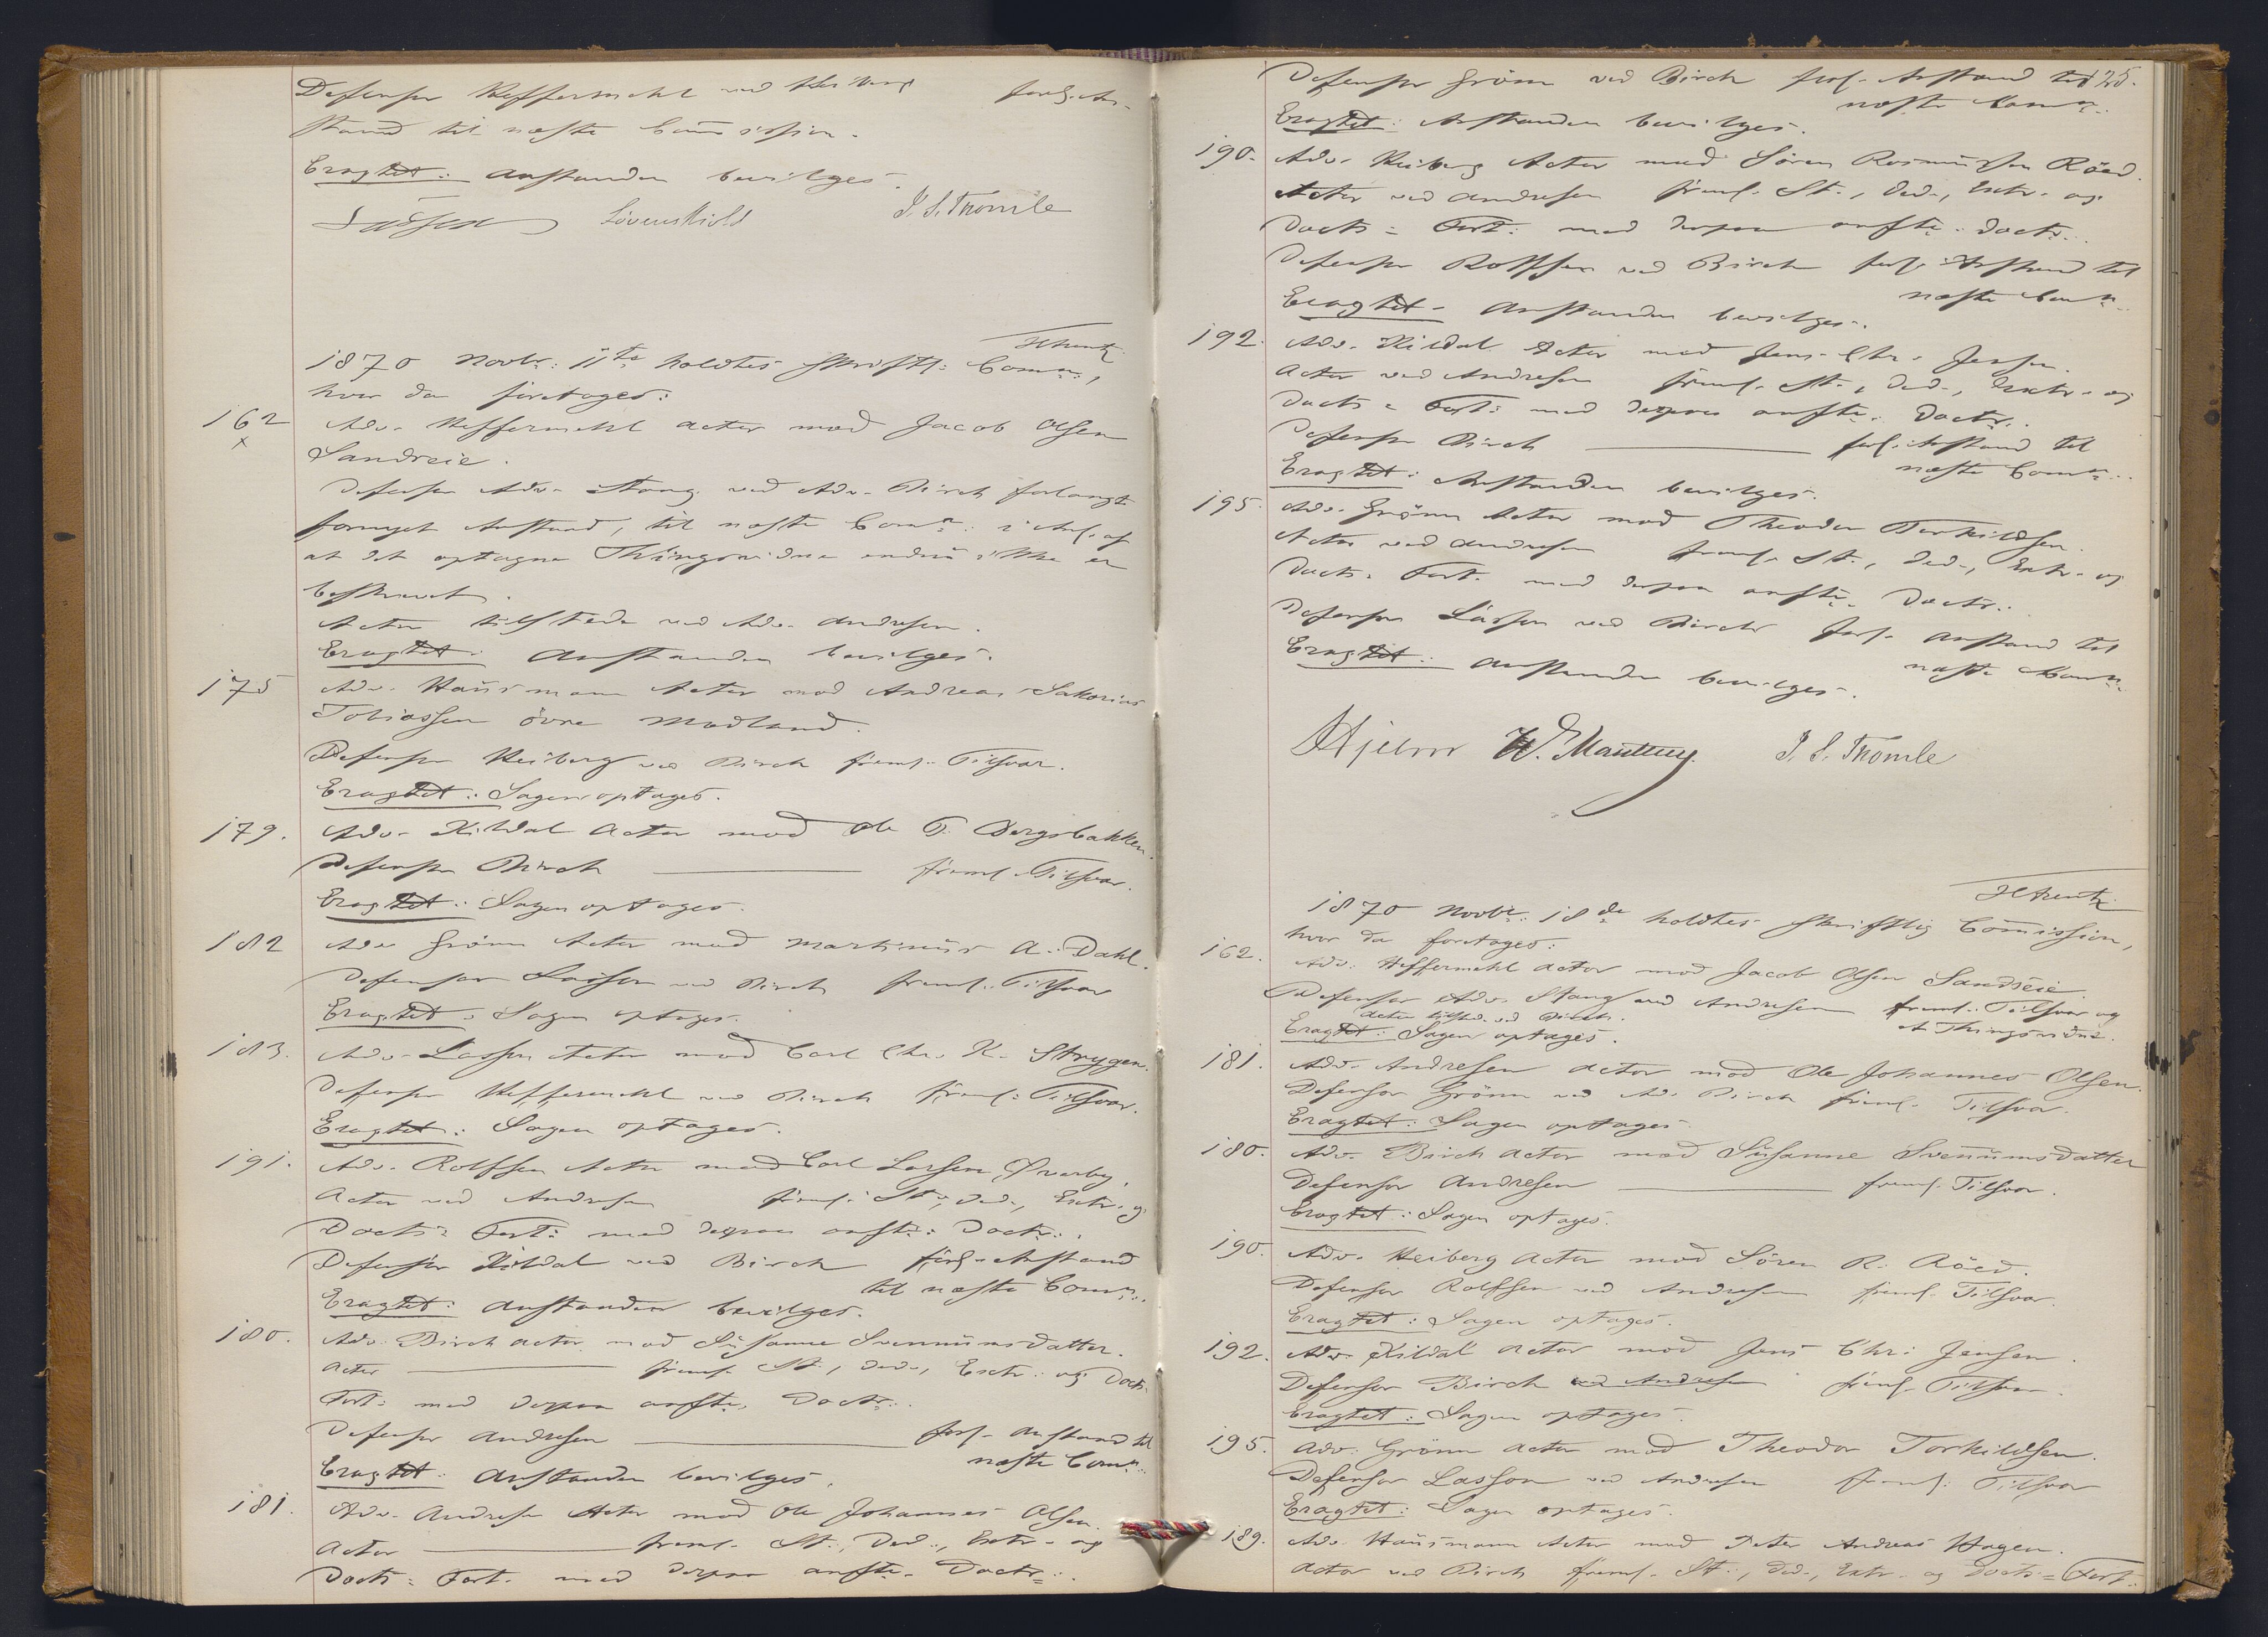 Defensor Heffermehl ved Heiberg forl. An-
stand til næste Commission.
Eragtet: Anstanden bevilges.
Lasson Løvenskiold J. S. Thomle
1870 Novbr: 11te holdtes Skriftl: Commn:,
hvor da foretoges:
162 Adv. Heffermehl Actor mod Jacob Olsen
x
Sandreie.
Defensor Adv. Stang ved Adv. Birch forlangte
fornyet Anstand, til næste Commn: i Anl. af
at det optagne Thingsvidne endnu ikke er
beskrevet.
Actor tilstede ved Adv. Andresen.
Eragtet: Anstanden bevilges.
175 Adv. Hausmann Actor mod Andreas Sakarias
Tobiassen övre Modland.
Defensor Heiberg ved Birch freml. Tilsvar.
Eragtet: Sagen optages.
179. Adv. Kildal Actor mod Ole T. Bergsbakken.
Defensor Birch ——— freml. Tilsvar.
Eragtet: Sagen optages.
182 Adv. Grönn Actor mod Martinius A. Dahl.
Defensor Lasson ved Birch freml. Tilsvar
Eragtet: Sagen optages.
183. Adv. Lasson Actor mod Carl Chr. K. Strygen.
Defensor Heffermehl ved Birch freml: Tilsvar.
Eragtet: Sagen optages.
191. Adv. Rolfsen Actor mod Carl Larsen Sværby.
Actor ved Andresen freml. St:, Ded., Extr. og
Docts: Fort: med derpaa anfte: Doctr:.
Defensor Kildal ved Birch forl. Anstand
til næste Commn:.
Eragtet: Anstanden bevilges.
180. Adv. Birch Actor mod Susanne Svennumsdatter.
Actor ——— freml. St:, Ded., Extr: og Docts:
Fort: med derpaa anfte. Doctr:.
Defensor Andresen ——— forl. Anstand til
næste Commn:
Eragtet: Anstanden bevilges.
181. Adv. Andresen Actor mod Ole Johannes Olsen.
Actor ——— freml. St:, Ded:, Extr. og
Docts: Fort. med derpaa anfte. Doctr:.
125.
Defensor Grönn ved Birch forl. Anstand til
næste Commn:
Eragtet: Anstanden bevilges.
190. Adv. Heiberg Actor mod Sören Rasmussen Röed.
Actor ved Andresen freml. St:, Ded., Extr. og
Docts: Fort: med derpaa anfte. Doctr:.
Defensor Rolfsen ved Birch forl. Anstand til
næste Commn:
Eragtet: Anstanden bevilges.
192. Adv. Kildal Actor mod Jens Chr. Jensen.
Actor ved Andresen freml. St:, Ded., Extr. og
Docts: Fort: med derpaa anfte. Doctr:.
Defensor Birch ——— forl. Anstand til
næste Commn:.
Eragtet: Anstanden bevilges.
195. Adv. Grönn Actor mod Theodor Torkildsen.
Actor ved Andresen freml. St:, Ded., Extr. og
Docts: Fort. med derpaa anfte. Doctr:.
Defensor Lasson ved Birch forl. Anstand til
næste Commn:
Eragtet: Anstanden bevilges.
Hjelm J. S. Thomle
1870 Novbr: 18de holdtes skriftlig Commission,
hvor da foretoges:
162. Adv. Heffermehl Actor mod Jacob Olsen Sandreie
Defensor Adv. Stang ved Andresen freml. Tilsvar og
Actor tilsted. ved Birch.
et Thingsvidne.
Eragtet: Sagen optages.
181. Adv. Andresen Actor mod Ole Johannes Olsen.
Defensor Grönn ved Ad. Birch freml. Tilsvar.
Eragtet: Sagen optages.
180. Adv. Birch Actor mod Susanne Svennumsdatter
Defensor Andresen ——— freml. Tilsvar.
Eragtet: Sagen optages.
190. Adv. Heiberg Actor mod Sören R. Röed.
Defensor Rolfsen ved Andresen freml. Tilsvar.
Eragtet: Sagen optages.
192. Adv. Kildal Actor mod Jens Chr: Jensen.
Defensor Birch ved Andresen freml. Tilsvar.
Eragtet: Sagen optages.
195. Adv. Grönn Actor mod Theodor Torkildsen.
Defensor Lasson ved Andresen freml: Tilsvar
Eragtet: Sagen optages.
189. Adv. Hausmann Actor mod Peter Andreas Hagen.
Actor ved Birch freml. St:, Ded., Extr. og Docts: Fort: